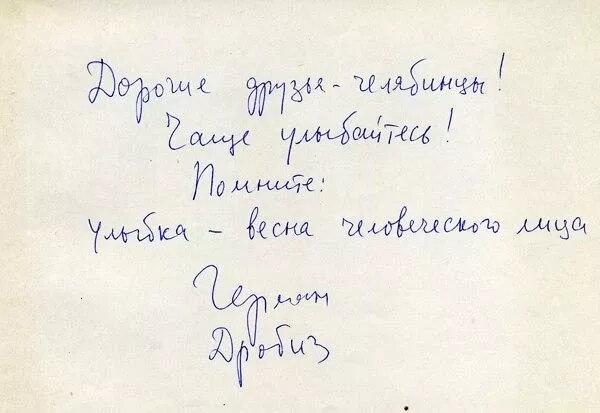 Дорогие друзья-челябинцы!
Чаще улыбайтесь!
Помните:
улыбка – весна человеческого лица
Герман
Дробиз